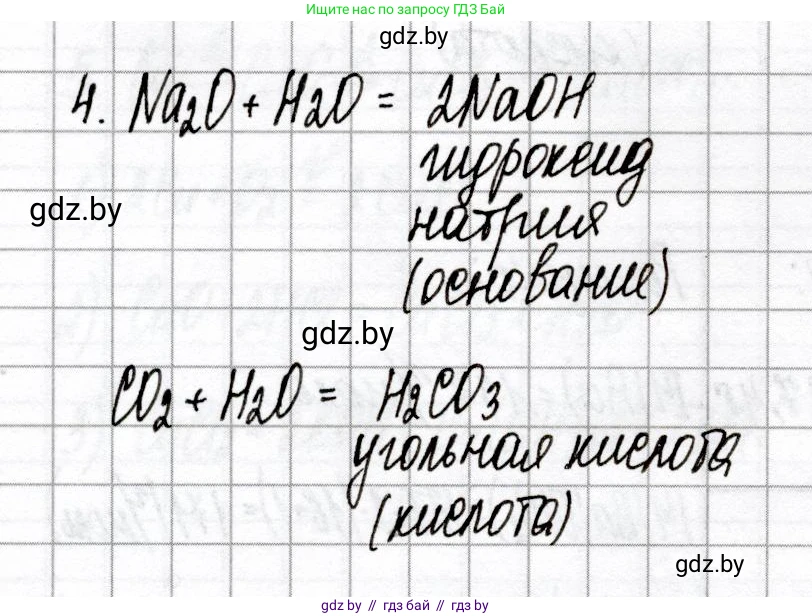 Ищите нас по запросу ГДЗ Бай
gdz.by
4. Na2O + H2O = 2NaOH
гидроксид
gdz.by
натрия
(основание)
gdz.by
CO2 + H2O = H2CO3
угольная кислота
(кислота)
gdz.by
gdz.by // гдз бай // gdz by